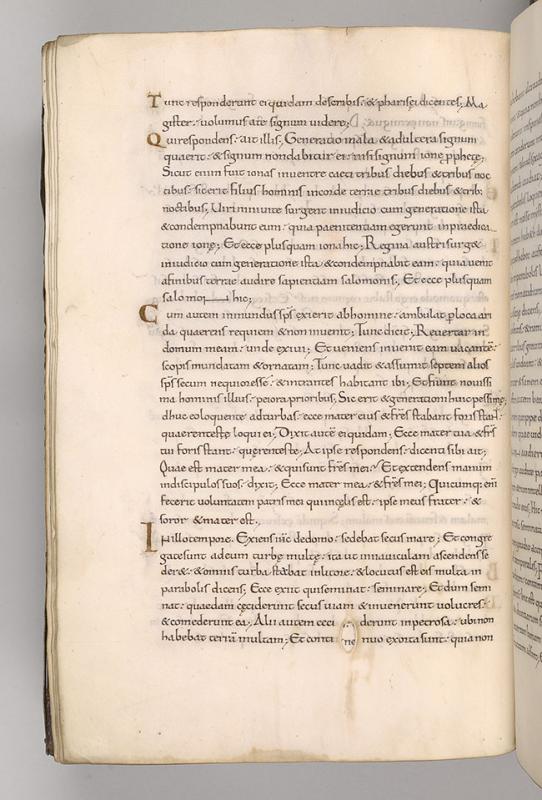 Tunc responderunt ei quidam describis; & pharisęi dicentes; Ma
gister; uolumus ate signum uidere;
Qui respondens; ait illis; Generatio mala & adultera signum
quaerit; & signum non dabitur ei; nisi signum ionę pphetę;
Sicut enim fuit ionas inuentre caeti tribus diebus & tribus noc
tibus; sic erit filius hominis incorde terrae tribus diebus & trib;
noctibus; Uiri niniuitę surgent iniudicio cum generatione ista
& condempnabunt eam; quia paenitentiam egerunt inpraedica
tione ionę; Et ecce plusquam iona hic; Regina austri surg&
iniudicio cum generatione ista & condempnabit eam; quia uenit
afinibus terrae audire sapientiam salomonis; Et ecce plusquam
salomon hic;
Cum autem inmundus sps exierit abhomine; ambulat ploca ari
da quaerens requiem & non inuenit; Tunc dicit; Reuertar in
domum meam; unde exiui; Et ueniens inuenit eam uacante
scopis mundatam & ornatam; Tunc uadit & assumit septem alios
sps secum nequiores se; & intrantes habitant ibi; Et fiunt nouissi
ma hominis illius; peiora prioribus; Sic erit & generationi huic pessimę;
dhuc eo loquente adturbas; ecce mater eius & frs stabant foris
quaerentes loqui ei; Dixit aute ei quidam; Ecce mater tua & frs
tui foris stant; quęrentes te; At ipse respondens; dicenti sibi ait;
Quae est mater mea; & qui sunt frs mei; Et extendens manum
indiscipulos suos; dixit; Ecce mater mea; & frs mei; Quicumq; eni
fecerit uoluntatem patris mei quincęlis est; ipse meus frater; &
soror & mater est;
In illo tempore; Exiens ihc dedomo; sedebat secus mare; Et congre
gatę sunt adeum turbę multę; ita ut innauiculam ascendens se
der&; & omnis turba stabat inlitore; & locutus est eis multa in
parabolis dicens; Ecce exiit qui seminat; seminare; Et dum semi
nat; quaedam cęciderunt secus uiam & uenerunt uolucres;
& comederunt ea; Alii autem ceci derunt inpetrosa; ubi non
habebat terra multam; Et conti ne nuo exorta sunt; quia non